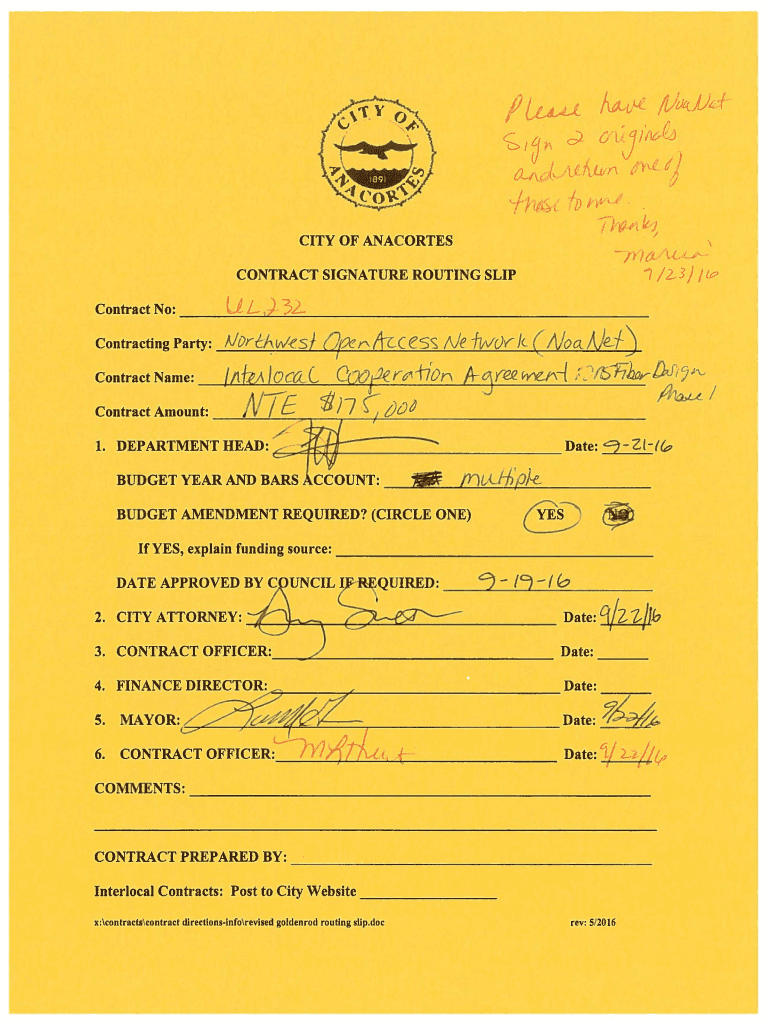 Please have NoaNet
Sign 2 originals
and return one of
those to me.
Thanks,
Marcia
9/23/16
CITY OF
1891
ANACORTES
CITY OF ANACORTES
CONTRACT SIGNATURE ROUTING SLIP
Contract No:
Contracting Party: Northwest Open Access Network (NoaNet)
Contract Name: Interlocal Cooperation Agreement: Fiber Design
Phase 1
Contract Amount: NTE $175,000
1. DEPARTMENT HEAD: Date: 9-21-16
BUDGET YEAR AND BARS ACCOUNT: multiple
BUDGET AMENDMENT REQUIRED? (CIRCLE ONE) YES NO
If YES, explain funding source:
DATE APPROVED BY COUNCIL IF REQUIRED: 9-19-16
2. CITY ATTORNEY: Date: 9/22/16
3. CONTRACT OFFICER: Date:
4. FINANCE DIRECTOR: Date:
5. MAYOR: Date: 9/22/16
6. CONTRACT OFFICER: Date: 9/22/16
COMMENTS:
CONTRACT PREPARED BY:
Interlocal Contracts: Post to City Website
x:\contracts\contract directions-info\revised goldenrod routing slip.doc rev: 5/2016